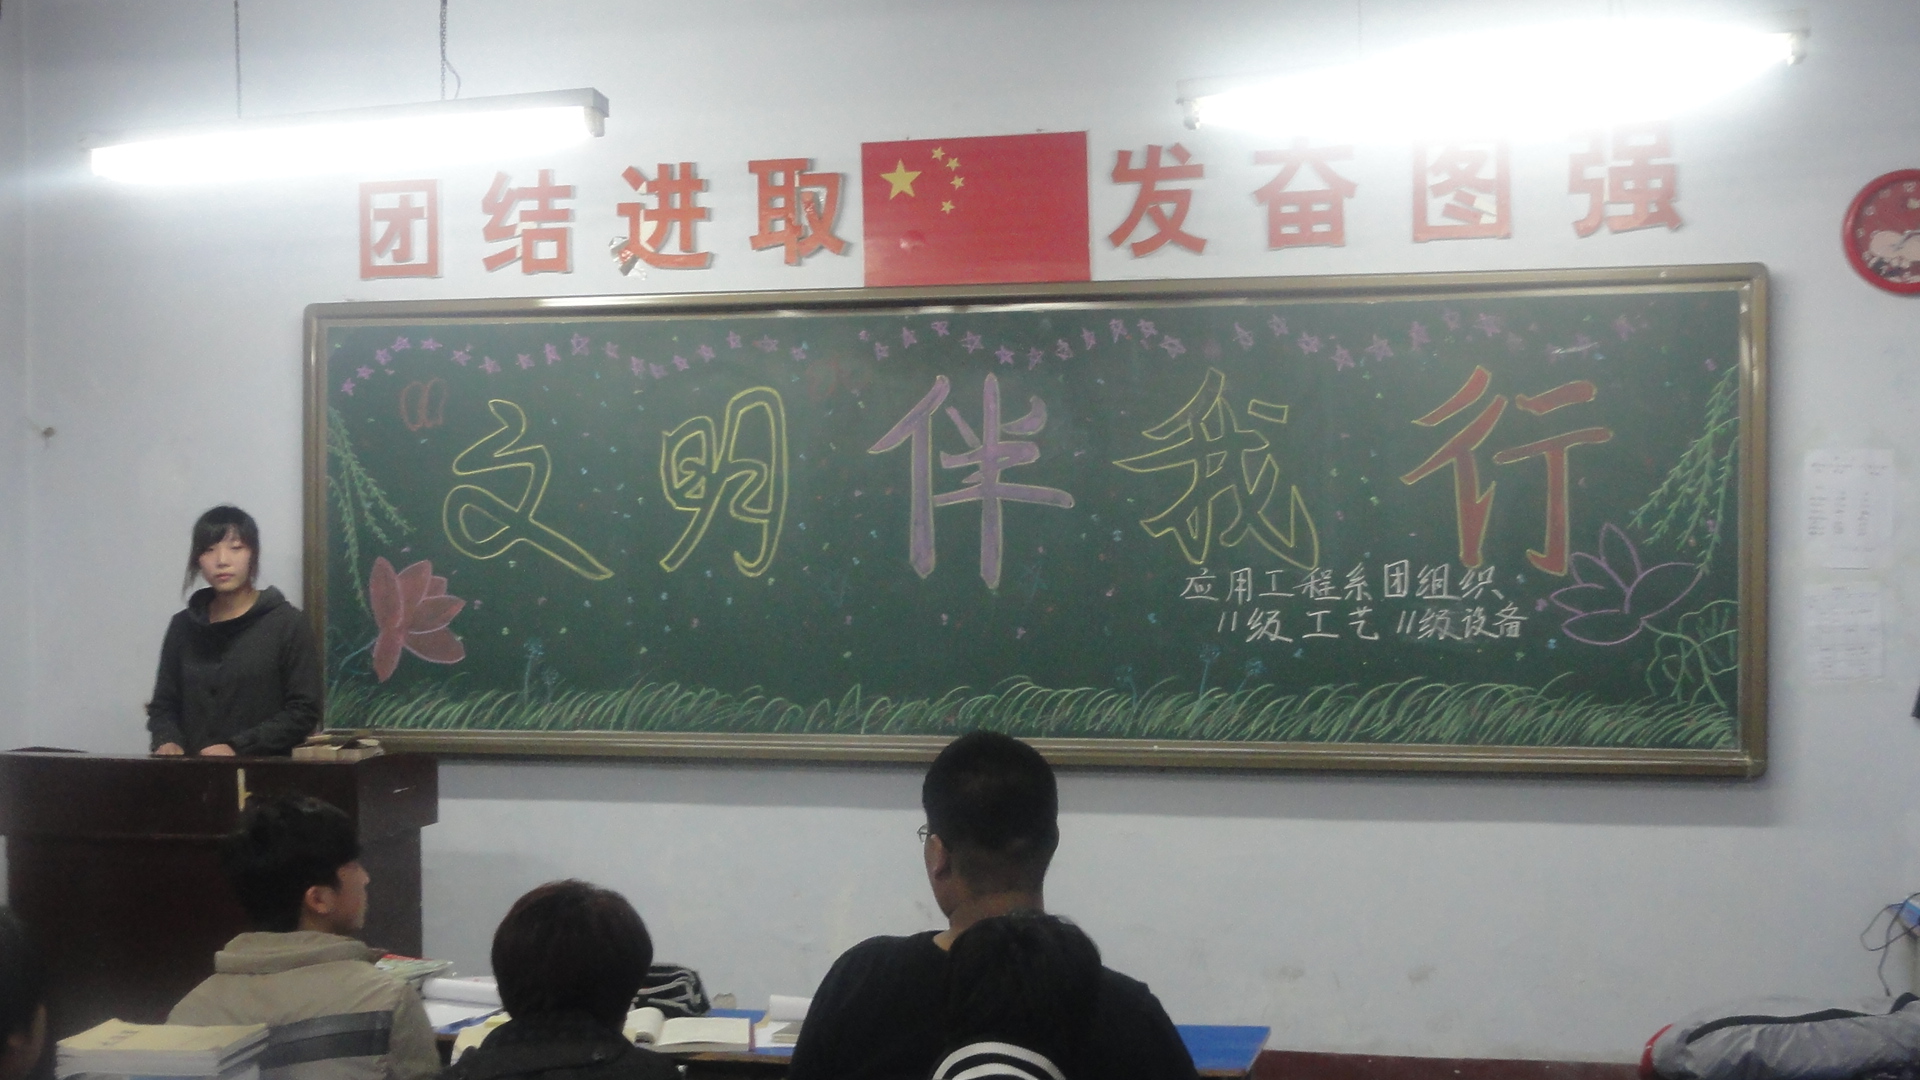 团结进取 发奋图强
文明伴我行
应用工程系团组织
11级工艺 11级设备